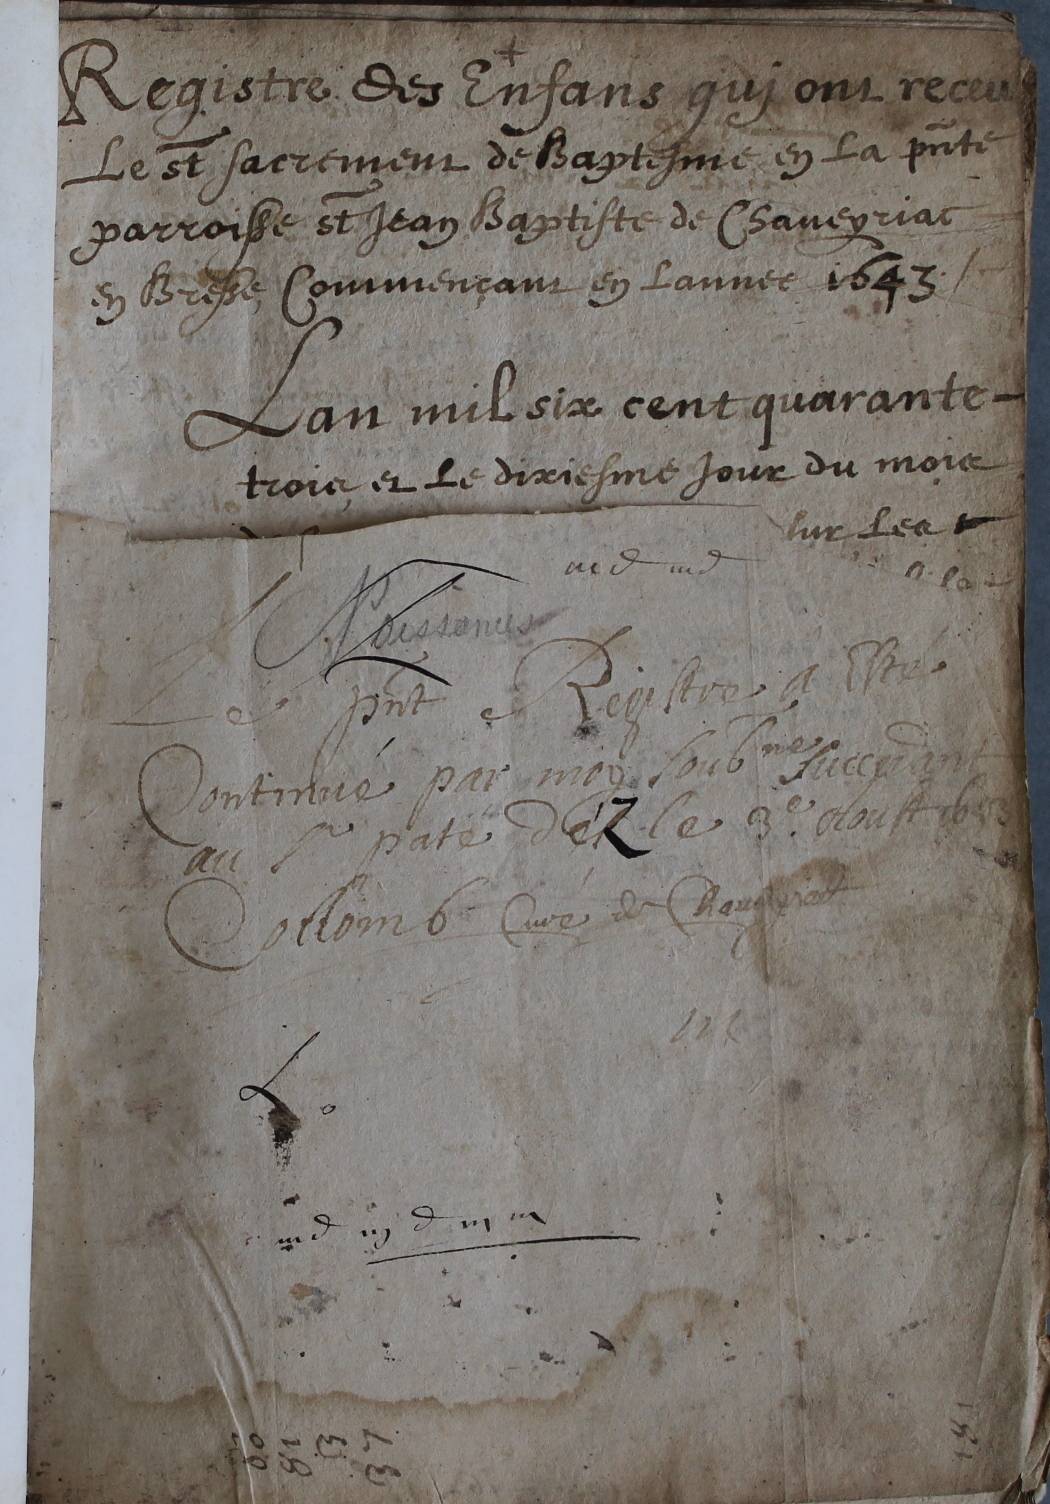 Registre des Enfans quj ont receu
Le st sacrement de Baptesme en La pnte
parroisse st Jean Baptiste de Chaveyriac
en Bresse, Commençant en Lannee 1643
Lan mil six cent quarante-
trois et Le dixiesme Jour du mois
sur Les
a la
Le pnt Registre a Esté
Continué par moy soubne succedant
au sr paté déz le 3e. doust
Collomb Curé de Chaveyriat
L
60
81
13
37